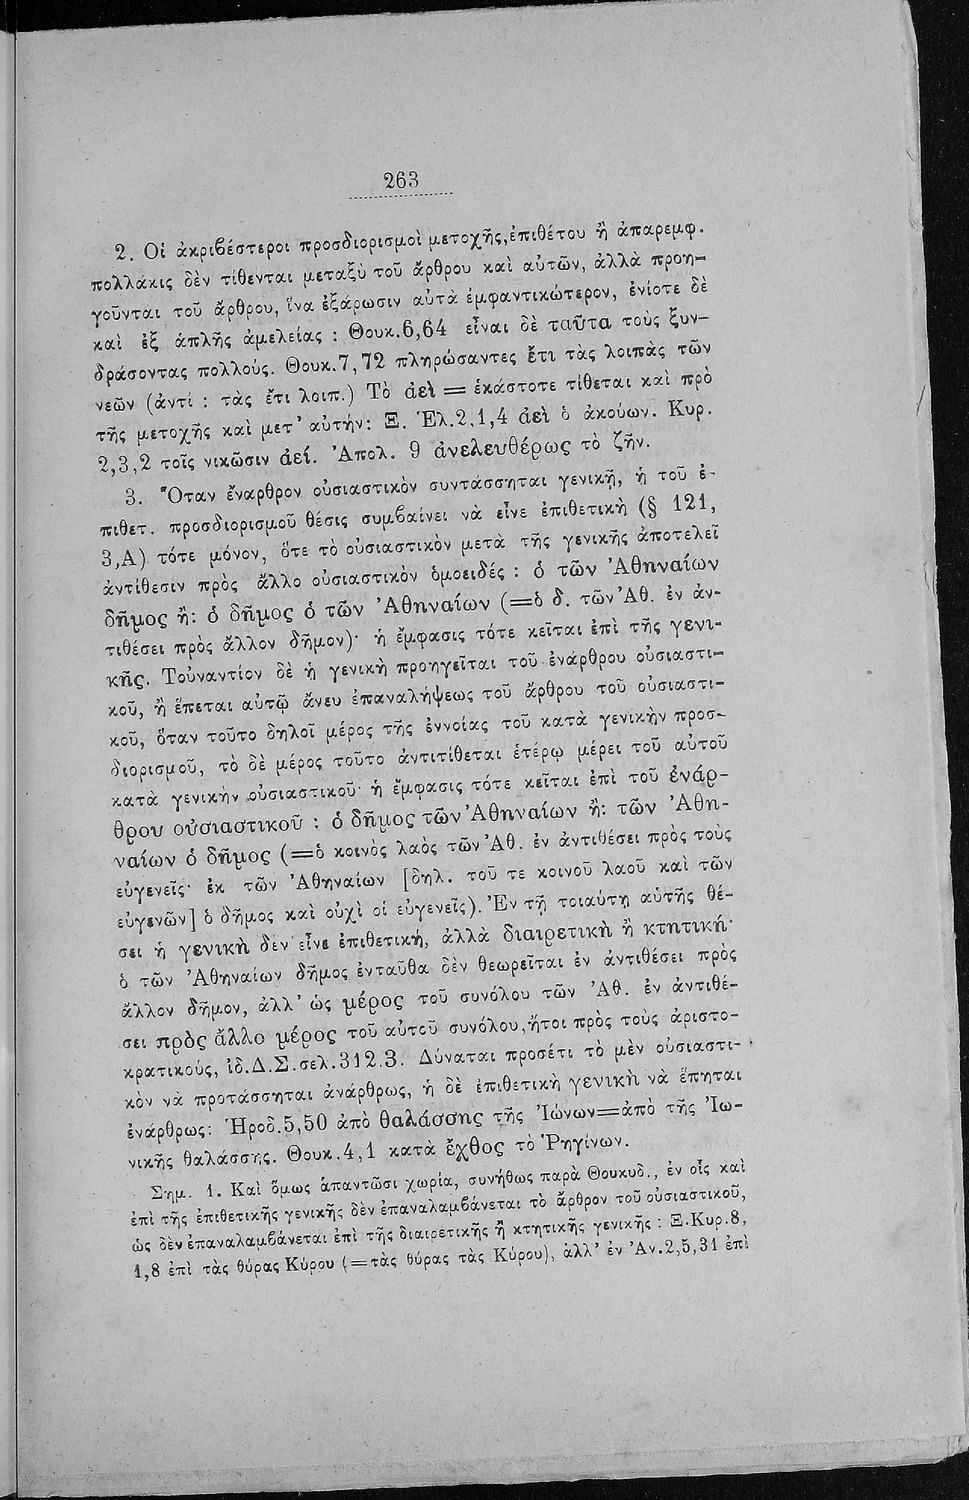 263
2. Οἱ ἀκριβέστεροι προσδιορισμοὶ μετοχῆς, ἐπιθέτου ἢ ἀπαρεμφ.
πολλάκις δὲν τίθενται μεταξὺ τοῦ ἄρθρου καὶ αὐτῶν, ἀλλὰ προη-
γοῦνται τοῦ ἄρθρου, ἵνα ἐξάρωσιν αὐτὰ ἐμφαντικώτερον, ἐνίοτε δὲ
καὶ ἐξ ἁπλῆς ἀμελείας : Θουκ.6,64 εἶναι δὲ ταῦτα τοὺς ξυν-
δράσοντας πολλούς. Θουκ.7,72 πληρώσαντες ἔτι τὰς λοιπὰς τῶν
νεῶν (ἀντί : τὰς ἔτι λοιπ.) Τὸ ἀεὶ = ἑκάστοτε τίθεται καὶ πρὸ
τῆς μετοχῆς καὶ μετ’ αὐτήν: Ξ. Ἑλ.2,1,4 ἀεὶ ὁ ἀκούων. Κυρ.
2,3,2 τοῖς νικῶσιν ἀεί. Ἀπολ. 9 ἀνελευθέρως τὸ ζῆν.
3. Ὅταν ἔναρθρον οὐσιαστικὸν συντάσσηται γενικῇ, ἡ τοῦ ἐ-
πιθετ. προσδιορισμοῦ θέσις συμβαίνει νὰ εἶνε ἐπιθετικὴ (§ 121,
3,Α) τότε μόνον, ὅτε τὸ οὐσιαστικὸν μετὰ τῆς γενικῆς ἀποτελεῖ
ἀντίθεσιν πρὸς ἄλλο οὐσιαστικὸν ὁμοειδές : ὁ τῶν Ἀθηναίων
δῆμος ἢ: ὁ δῆμος ὁ τῶν Ἀθηναίων (=ὁ δ. τῶν Ἀθ. ἐν ἀν-
τιθέσει πρὸς ἄλλον δῆμον)· ἡ ἔμφασις τότε κεῖται ἐπὶ τῆς γενι-
κῆς. Τοὐναντίον δὲ ἡ γενικὴ προηγεῖται τοῦ ἐνάρθρου οὐσιαστι-
κοῦ, ἢ ἕπεται αὐτῷ ἄνευ ἐπαναλήψεως τοῦ ἄρθρου τοῦ οὐσιαστι-
κοῦ, ὅταν τοῦτο δηλοῖ μέρος τῆς ἐννοίας τοῦ κατὰ γενικὴν προσ-
διορισμοῦ, τὸ δὲ μέρος τοῦτο ἀντιτίθεται ἑτέρῳ μέρει τοῦ αὐτοῦ
κατὰ γενικὴν οὐσιαστικοῦ· ἡ ἔμφασις τότε κεῖται ἐπὶ τοῦ ἐνάρ-
θρου οὐσιαστικοῦ : ὁ δῆμος τῶν Ἀθηναίων ἢ: τῶν Ἀθη-
ναίων ὁ δῆμος (=ὁ κοινὸς λαὸς τῶν Ἀθ. ἐν ἀντιθέσει πρὸς τοὺς
εὐγενεῖς· ἐκ τῶν Ἀθηναίων [δηλ. τοῦ τε κοινοῦ λαοῦ καὶ τῶν
εὐγενῶν] ὁ δῆμος καὶ οὐχὶ οἱ εὐγενεῖς). Ἐν τῇ τοιαύτῃ αὐτῆς θέ-
σει ἡ γενικὴ δὲν εἶνε ἐπιθετική, ἀλλὰ διαιρετικὴ ἢ κτητική·
ὁ τῶν Ἀθηναίων δῆμος ἐνταῦθα δὲν θεωρεῖται ἐν ἀντιθέσει πρὸς
ἄλλον δῆμον, ἀλλ’ ὡς μέρος τοῦ συνόλου τῶν Ἀθ. ἐν ἀντιθέ-
σει πρὸς ἄλλο μέρος τοῦ αὐτοῦ συνόλου, ἤτοι πρὸς τοὺς ἀριστο-
κρατικούς, ἰδ.Δ.Σ.σελ.312.3. Δύναται προσέτι τὸ μὲν οὐσιαστι-
κὸν νὰ προτάσσηται ἀνάρθρως, ἡ δὲ ἐπιθετικὴ γενικὴ νὰ ἕπηται
ἐνάρθρως: Ἡροδ.5,50 ἀπὸ θαλάσσης τῆς Ἰώνων=ἀπὸ τῆς Ἰω-
νικῆς θαλάσσης. Θουκ.4,1 κατὰ ἔχθος τὸ Ῥηγίνων.
Σημ. 1. Καὶ ὅμως ἀπαντῶσι χωρία, συνήθως παρὰ Θουκυδ., ἐν οἷς καὶ
ἐπὶ τῆς ἐπιθετικῆς γενικῆς δὲν ἐπαναλαμβάνεται τὸ ἄρθρον τοῦ οὐσιαστικοῦ,
ὡς δὲν ἐπαναλαμβάνεται ἐπὶ τῆς διαιρετικῆς ἢ κτητικῆς γενικῆς : Ξ.Κυρ.8,
1,8 ἐπὶ τὰς θύρας Κύρου (=τὰς θύρας τὰς Κύρου), ἀλλ’ ἐν Ἀν.2,5,31 ἐπὶ